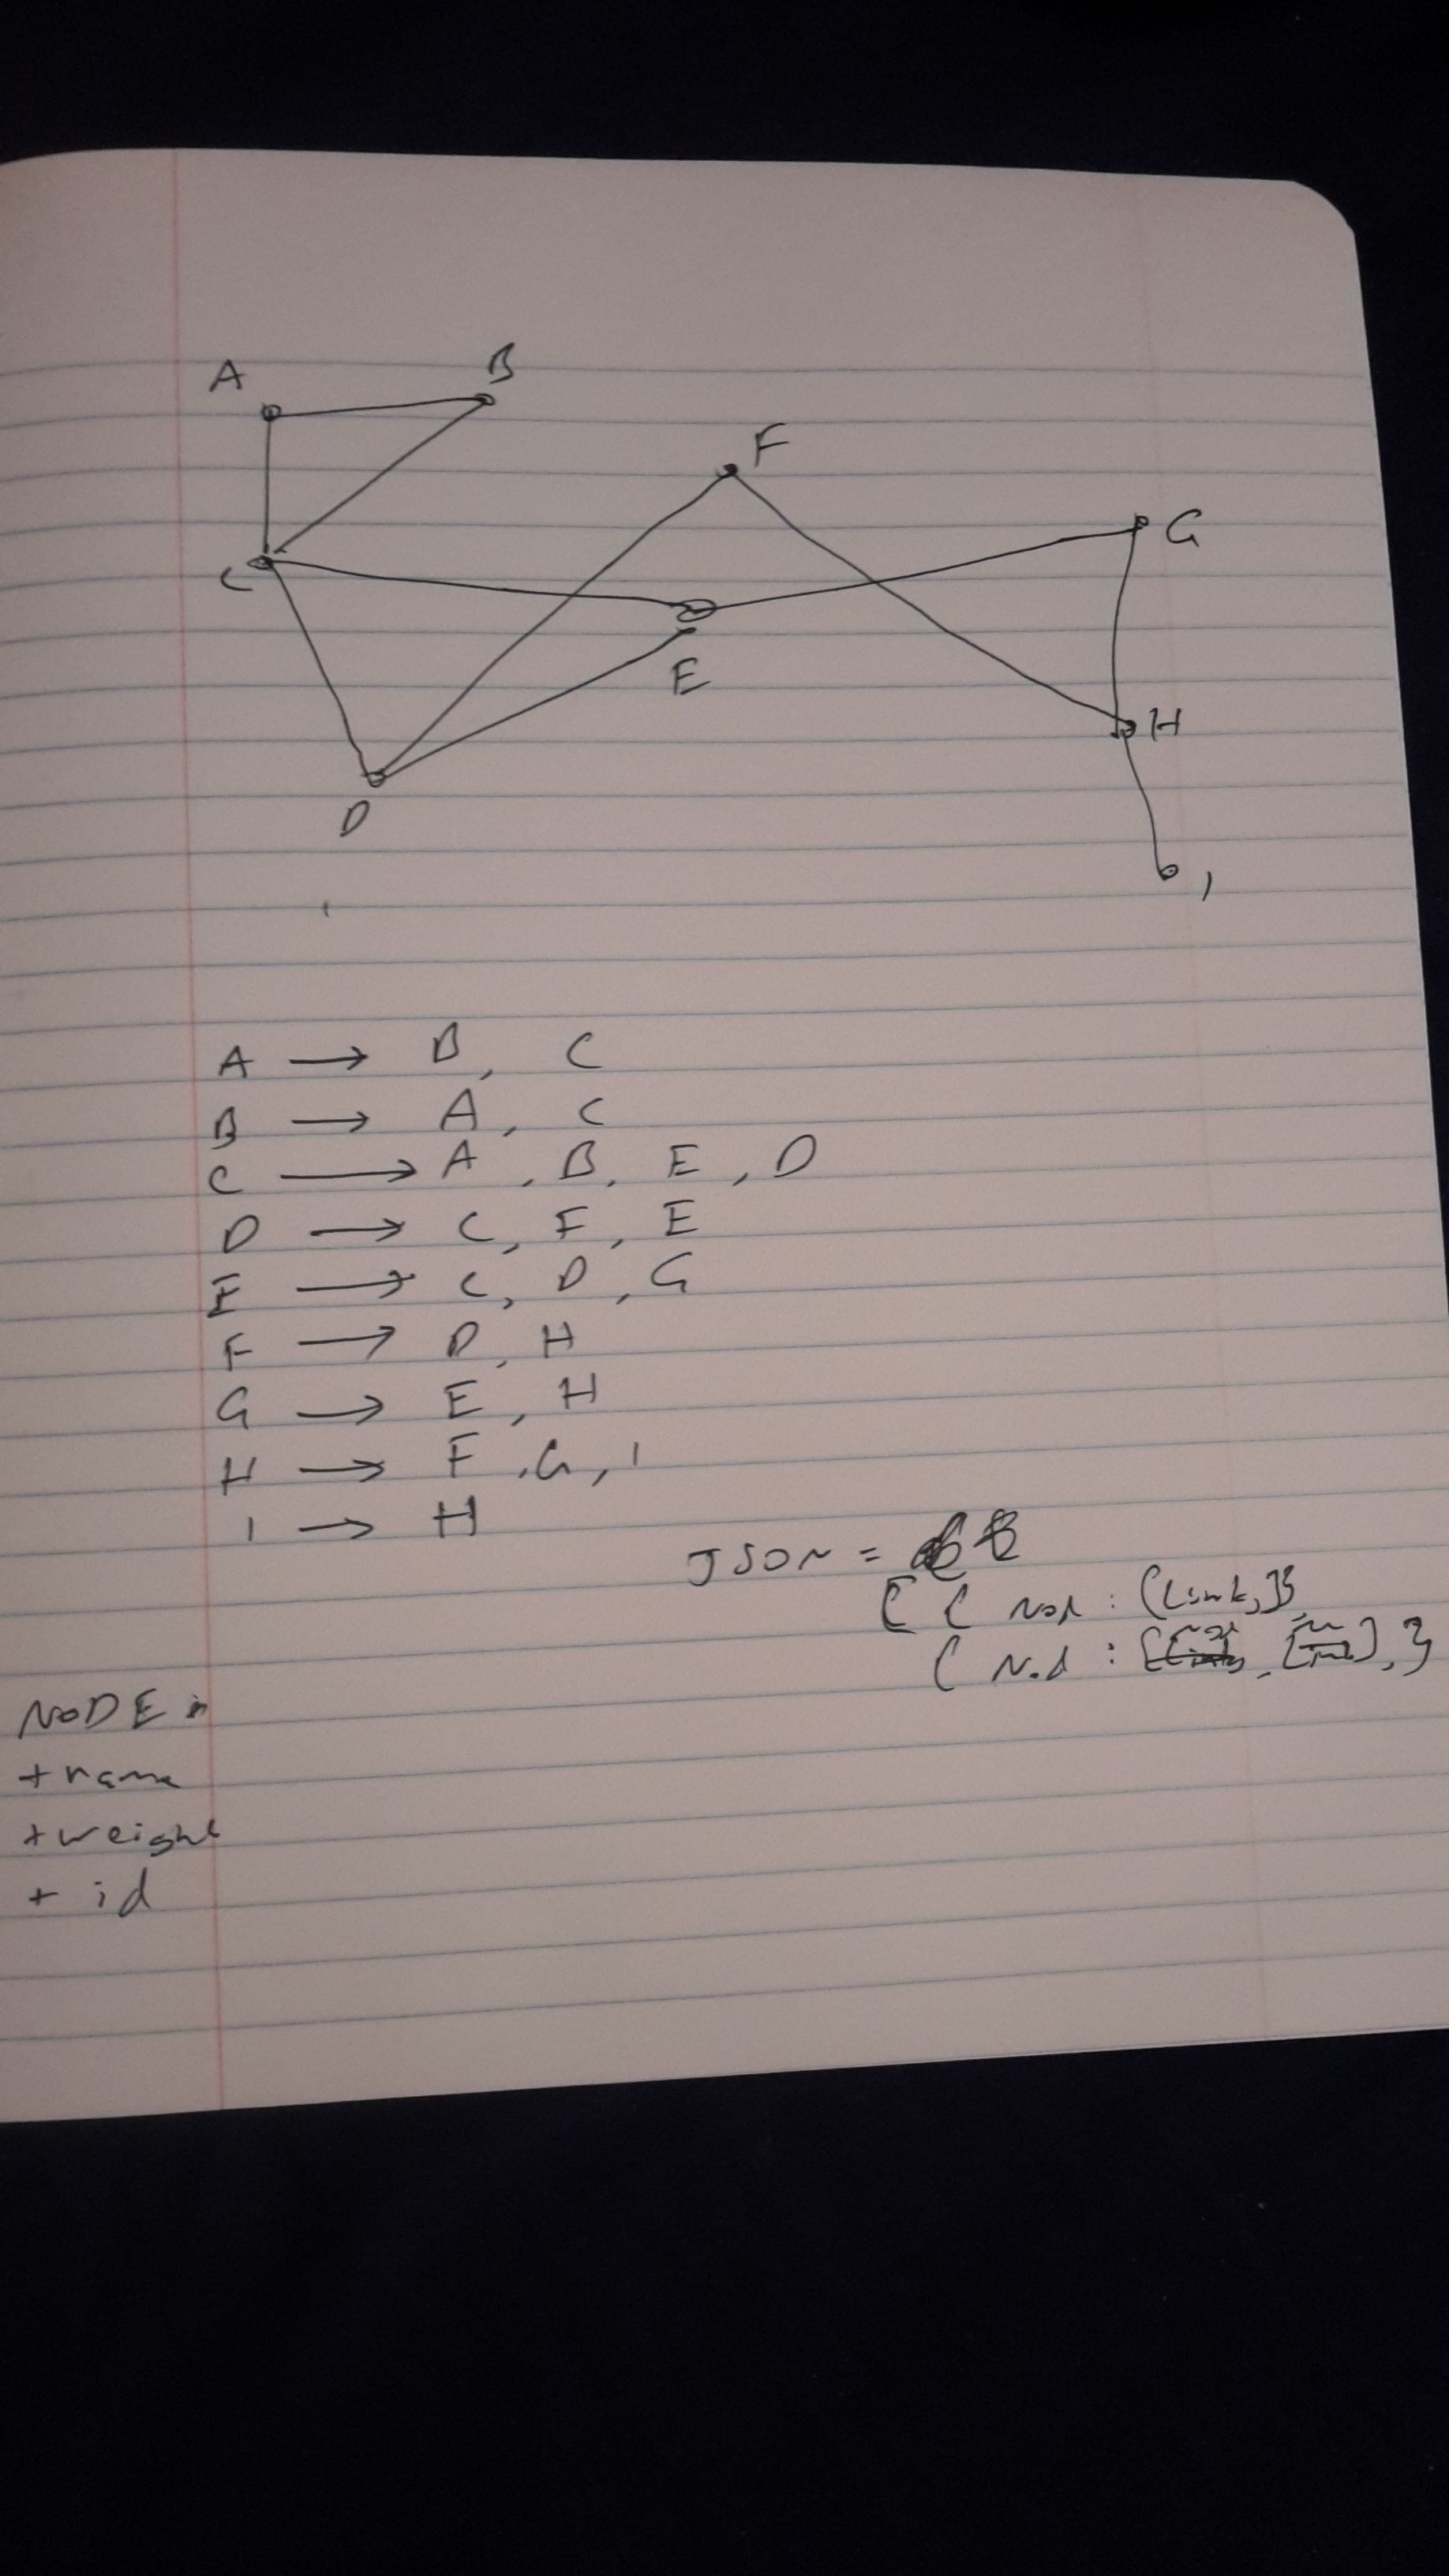 A
B
F
G
C
E
H
D
I
A → B, C
B → A, C
C → A, B, E, D
D → C, F, E
E → C, D, G
F → D, H
G → E, H
H → F, G, I
I → H
JSON =
[ { Nod : [Link,]},
{ Nod :
NODE
+ name
+ weight
+ id